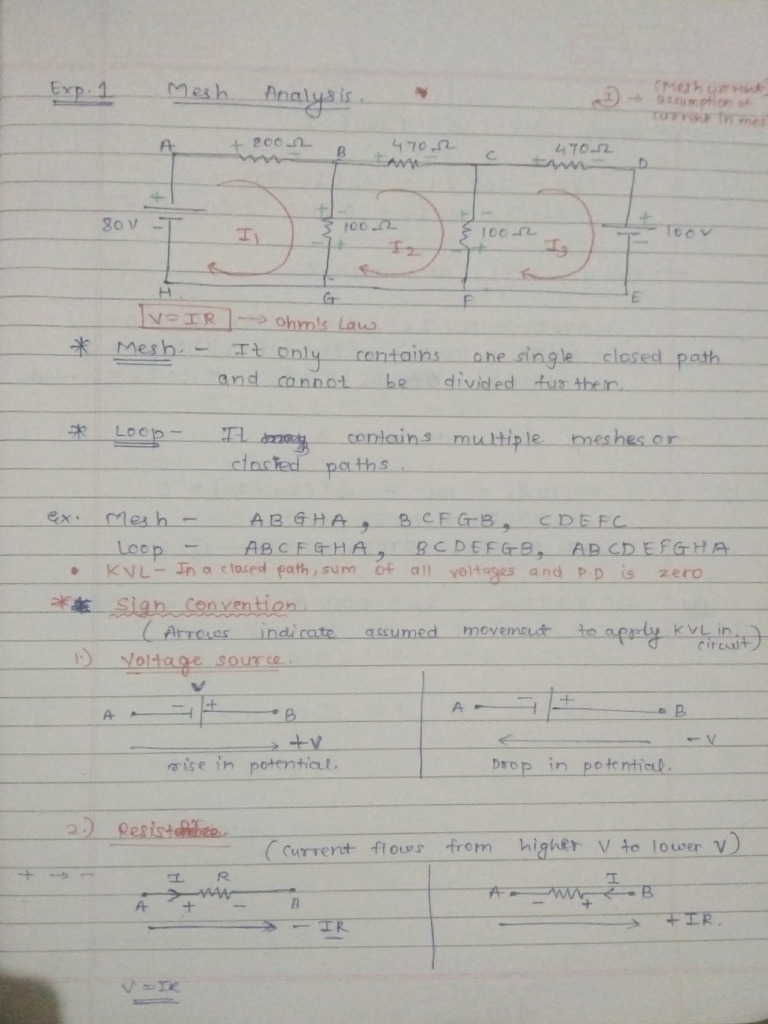 Exp. 1 Mesh Analysis.
I → (Mesh current)
assumption of
current in mes
A + 200Ω - B + 470Ω - C + 470Ω - D
80V + - I1 + - 100Ω - + I2 + - 100Ω - + I3 + - 100V
H G F E
V = IR → Ohm's Law
* Mesh. - It only contains one single closed path
and cannot be divided further.
* Loop - It contains multiple meshes or
closed paths.
ex. Mesh - ABGHA, BCFGB, CDEFC
Loop - ABCFGHA, BCDEFGB, ABCDEFGHA
• KVL - In a closed path, sum of all voltages and P.D is zero
** Sign convention
(Arrows indicate assumed movement to apply KVL in circuit)
1.) Voltage source.
V
A - + B A - + B
+V -V
rise in potential. Drop in potential.
2.) Resistance
(current flows from higher V to lower V)
+ → - I R I
A + - B A - + B
- IR + IR.
V = IR